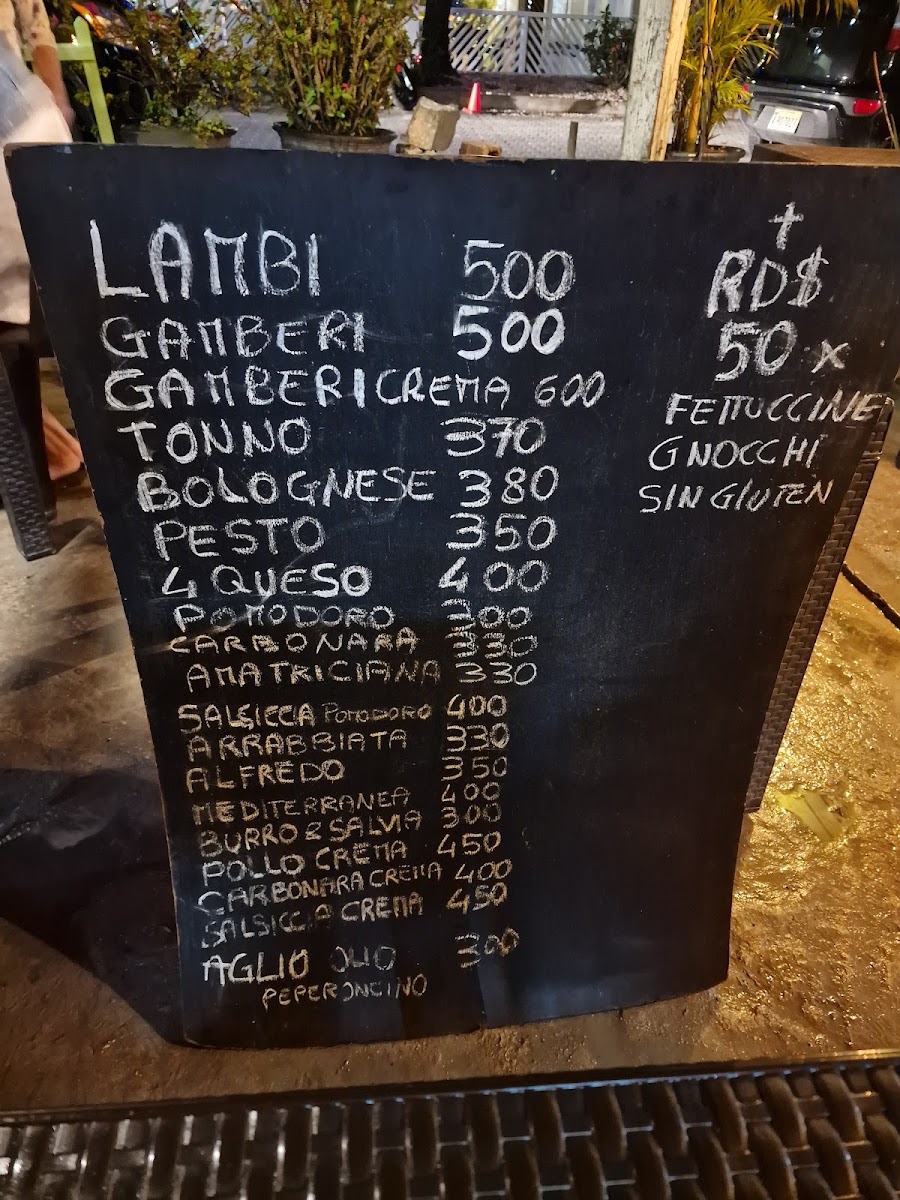 LAMBI 500
GAMBERI 500
GAMBERI CREMA 600
TONNO 370
BOLOGNESE 380
PESTO 350
4 QUESO 400
POMODORO 300
CARBONARA 330
AMATRICIANA 330
SALSICCA POMODORO 400
ARRABBIATA 330
ALFREDO 350
MEDITERRANEA 400
BURRO & SALVIA 300
POLLO CREMA 450
CARBONARA CREMA 400
SALSICCIA CREMA 450
AGLIO OLIO 300
PEPERONCINO
+
RD$
50 x
FETTUCCINE
GNOCCHI
SIN GLUTEN